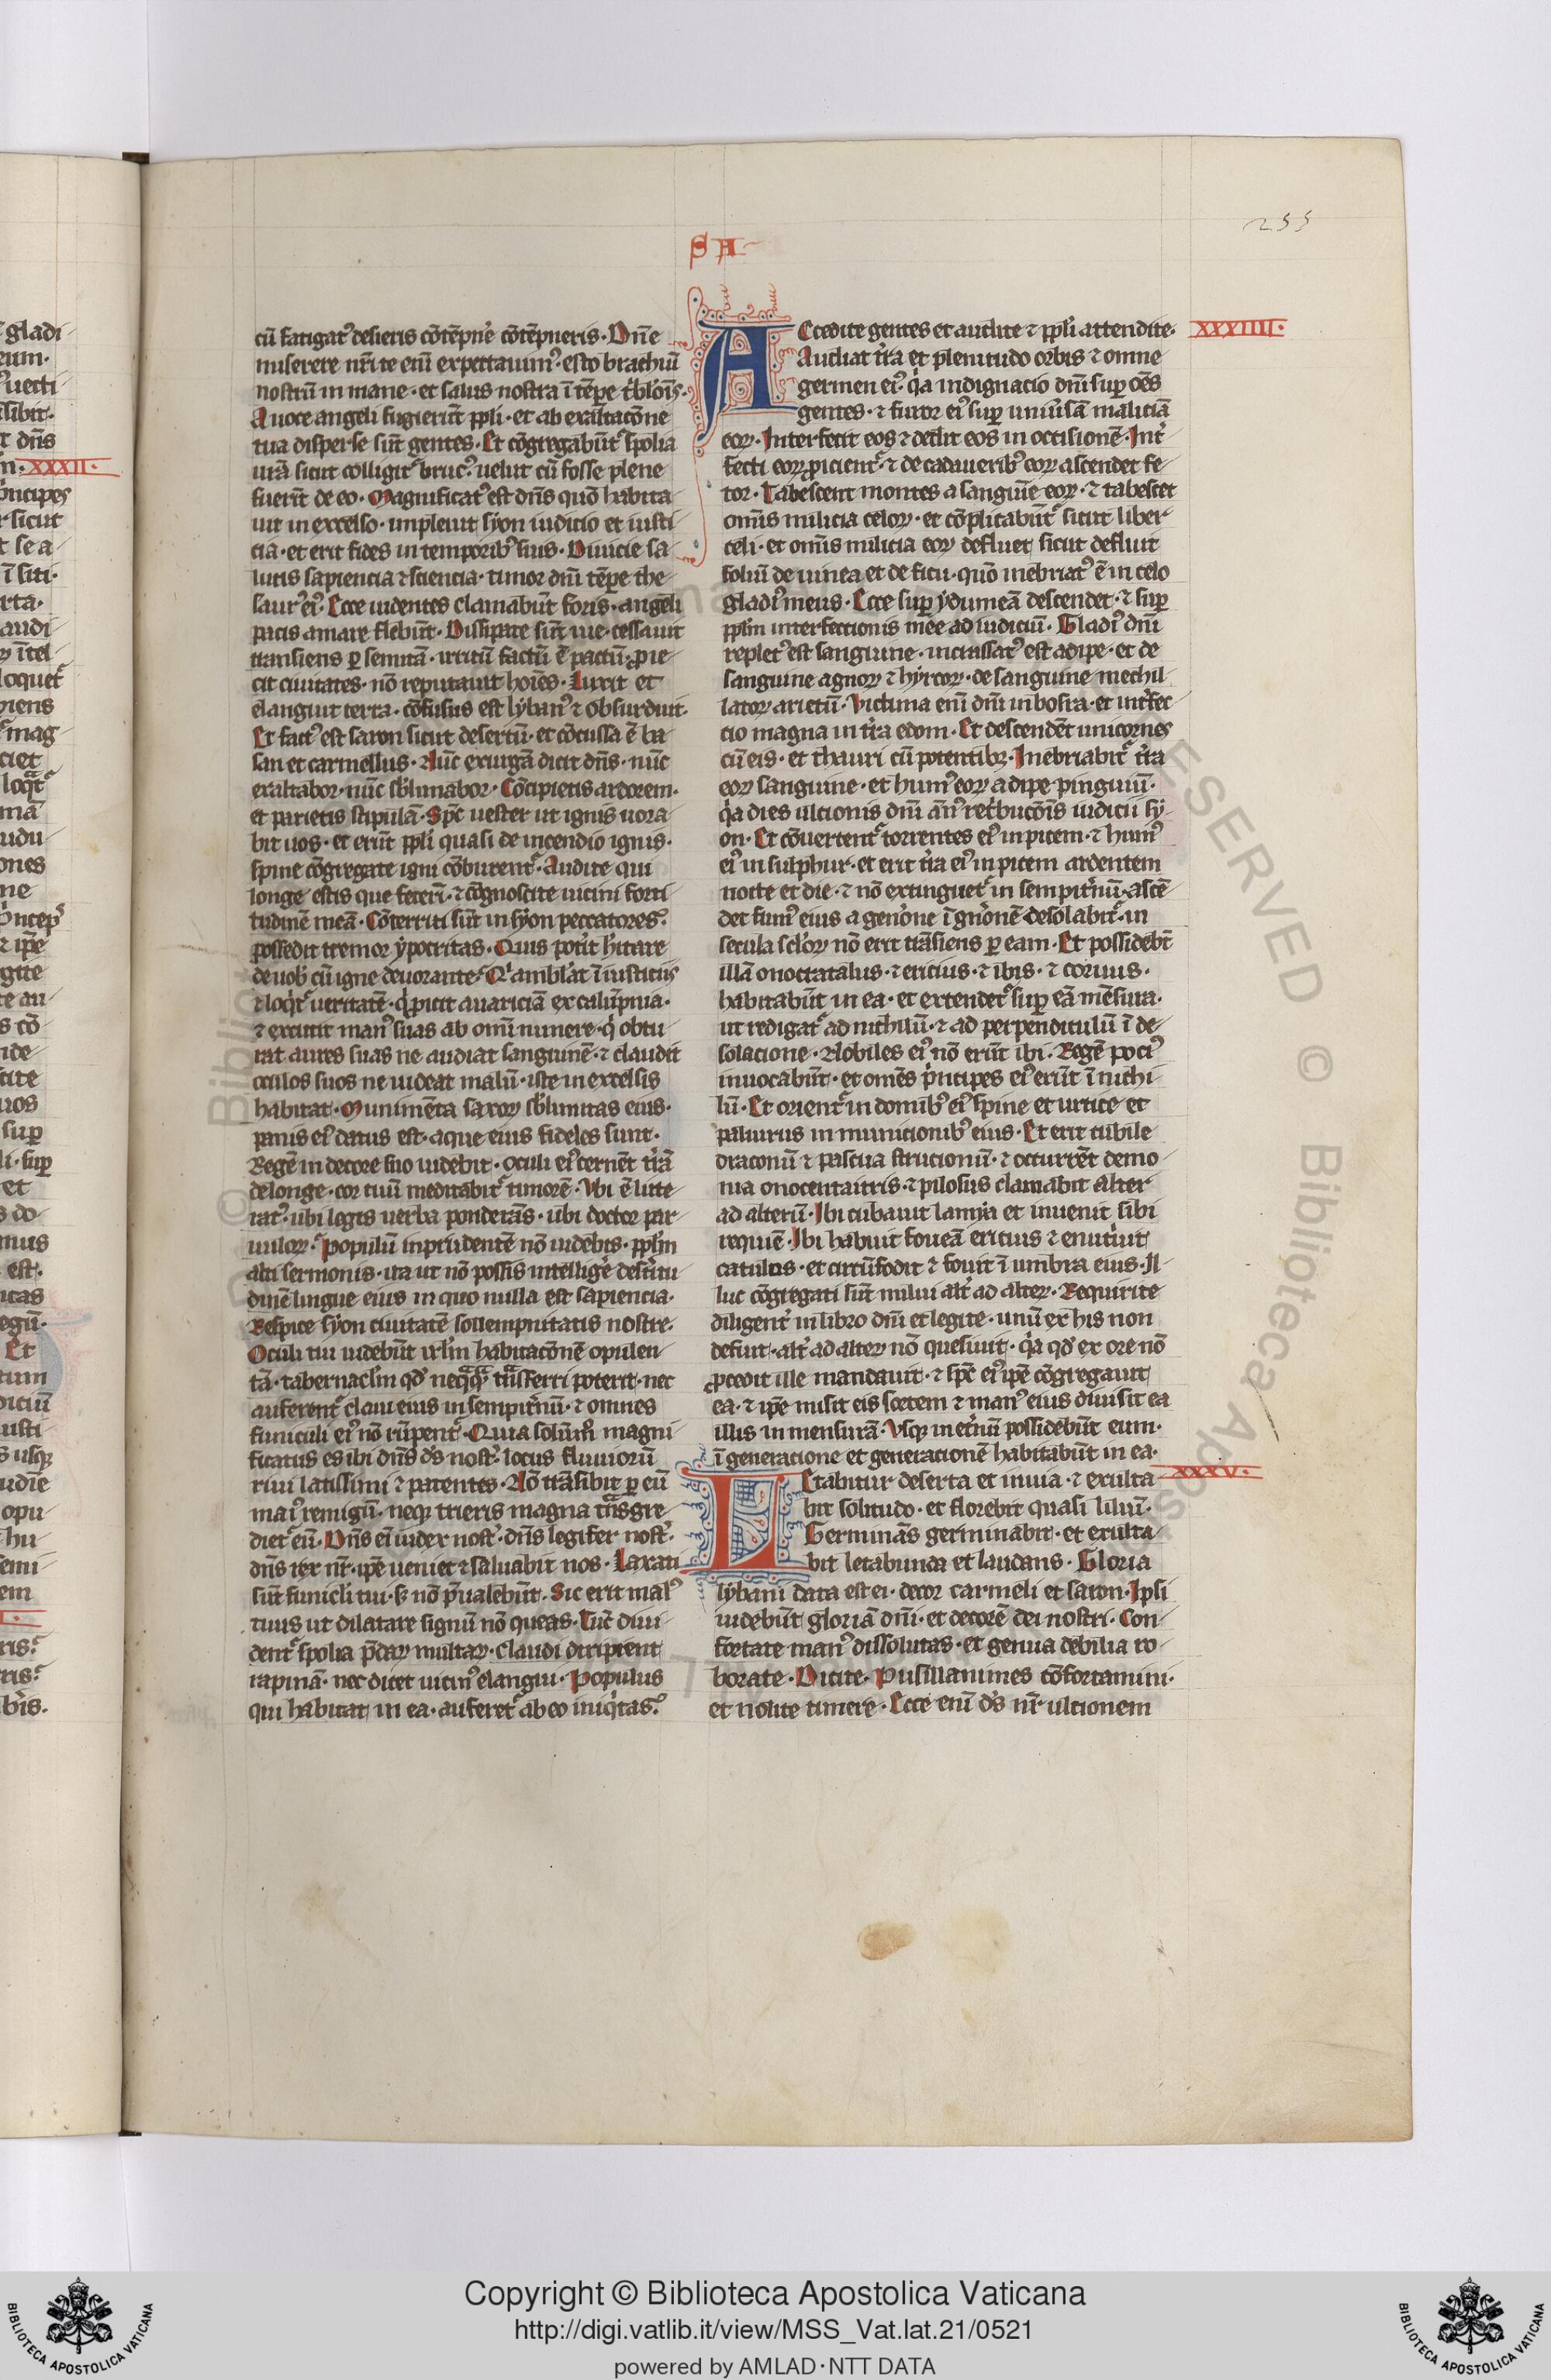 SA
255
cū fatigat᷒ desieris cōtēpne᷒ cōtēpneris. Dn̄e
miserere nr̄i te eni᷒ expectauim᷒. esto brachiū
nostrū in mane. et salus nostra ī tēpe t͛bl᷒onis.
A uoce angeli fugierūt ppl̓i. et ab exaltacōne
tua disperse sūt gentes. Et cōgregabūt᷑ spolia
ur̄a sicut colligit᷑ bruc᷒. uelut cū fosse plene
fuerīt de eo. Magnificat᷒ est dn̄s quō habita
uit in excelso. impleuit syon iudicio et iusti
cia. et erit fides in temporib᷒ suis. Diuicie sa
lutis sapiencia ⁊ sciencia. timor dn̄i tēpe the
saur᷒ ei᷒. Ecce uidentes clamabūt foris. angeli
pacis amare flebūt. Dissipate sūt uie. cessauit
transiens ꝑ semitā. irritū factū ē pactū. ꝓie
cit ciuitates. nō reputauit hoīes. Luxit et
elanguit terra. cōfusus est lyban᷒ ⁊ obsurduit.
Et fact᷒ est saron sicut desertū. et cōcussa ē ba
san et carmellus. Nūc exurgā dicit dn̄s. nūc
exaltabor. nūc sb̓limabor. Cōcipietis ardorem.
et parietis stipulā. Spc̄ uester ut ignis uora
bit uos. et erūt ppl̓i quasi de incendio ignis.
spine cōgregate igni cōburent᷑. Audite qui
longe estis que fecerī. ⁊ cōgnoscite uicini forti
tudinē meā. Cōterriti sūt in syon peccatores.
possedit tremor ypocritas. Quis pot͛it hītare
de uob̓ cū igne deuorante. Qi᷒ ambl̓at ī iusticiis
⁊ loqt᷑ ueritatē. q̇ ꝓicit auariciā ex calūpnia.
⁊ excutit man᷒ suas ab omī munere. q̇ obtu
rat aures suas ne audiat sanguinē. ⁊ claudit
oculos suos ne uideat malū. iste in excelsis
habitat. Munimēta saxoꝝ sb̓limitas eius.
panis ei᷒ datus est. aque eius fideles sunt.
Regē in decore suo uidebit. oculi ei᷒ cernēt tr̄ā
de longe. cor tuū meditabit᷑ timorē. Vbi ē litte
rat᷒. ubi legis uerba ponderās. ubi doctor par
uuloꝝ. Populū inprudentē nō uidebis. ppl̓m
alti sermonis. ita ut nō possis intellige᷒ desertitu
dinē lingue eius in quo nulla est sapiencia.
Respice syon ciuitatē sollempnitatis nostre.
Oculi tui uidebūt ir̄l̓m habitacōnē opulen
tā. tabernacl̓m qd̓ neqͣqͣ tͣsferri poterit. nec
auferent᷑ claui eius in sempit͛nū. ⁊ omnes
funiculi ei᷒ nō rūpent᷑. Quia solūm᷒ magni
ficatus es ibi dn̄s ds̄ nost᷒. locus fluuiorū
riui latissimi ⁊ patentes. Nō trāsibit ꝑ eū
mai᷒ remigū. neqꝫ trieris magna tͣsgre
diet᷑ eū. Dn̄s ei᷒ iudex nost᷒. dn̄s legifer nost᷒.
dn̄s rex nr̄. ip̄e ueniet ⁊ saluabit nos. Laxati
sūt funicl̓i tui. sꝫ nō p̄ualebūt. Sic erit mal᷒
tuus ut dilatare signū nō queas. Tūc diui
dent᷑ spolia p̄daꝝ multaꝝ. claudi diripient
rapinā. nec dicet uicin᷒ elangui. Populus
qui habitat in ea. auferet᷑ ab eo iniq̇tas.
Accedite gentes et audite ⁊ ppl̓i attendite. XXXIIII.
Audiat tr̄a et plenitudo orbis ⁊ omne
germen ei᷒. q̇a indignacio dn̄i suꝑ oēs
gentes. ⁊ furor ei᷒ suꝑ uniūsā maliciā
eoꝝ. Interfecit eos ⁊ dedit eos in occisionē. Int᷒
fecti eoꝝ ꝓicient᷑. ⁊ de cadauerib᷒ eoꝝ ascendet fe
tor. Tabescent montes a sanguīe eoꝝ. ⁊ tabescet
omīs milicia celoꝝ. et cōplicabūt᷑ sicut liber
celi. et omīs milicia eoꝝ defluet sicut defluit
foliū de uinea et de ficu. quō inebriat᷒ ē in celo
gladi᷒ meus. Ecce suꝑ ydumeā descendet. ⁊ suꝑ
ppl̓m interfectionis mee ad iudiciū. Gladi᷒ dn̄i
replet᷒ est sanguine. incrassat᷒ est adipe. et de
sanguine agnoꝝ ⁊ hyrcoꝝ. de sanguine medul
latoꝝ arietū. Victima enī dn̄i in bosra. et int͛fec
cio magna in tr̄a edom. Et descendēt unicornes
cū eis. et thauri cū potentibꝫ. Inebriabit᷑ tr̄a
eoꝝ sanguine. et hum᷒ eoꝝ adipe pinguiū.
q̇a dies ulcionis dn̄i ān᷒ ret͛bucōis iudicii sy
on. Et cōuertent᷑ torrentes ei᷒ in picem. ⁊ hum᷒
ei᷒ in sulphur. et erit tr̄a ei᷒ in picem ardentem
nocte et die. ⁊ nō extinguet᷑ in sempit͛nū. ascē
det fum᷒ eius a gen͛one ī gn͛onē desolabit᷑. in
secula sclōꝝ nō erit trāsiens ꝑ eam. Et possidebūt
illā onocratalus. ⁊ ericius. ⁊ ibis. ⁊ coruus.
habitabūt in ea. et extendet᷑ suꝑ eā mēsura.
ut redigat᷑ ad nichilū. ⁊ ad perpendiculū ī de
solacione. Nobiles ei᷒ nō erūt ibi. Regē poci᷒
inuocabūt. et omēs p͛ncipes ei᷒ erūt ī nichi
lū. Et orient᷑ in domib᷒ ei᷒ spine et urtice et
paliurus in municionib᷒ eius. Et erit cubile
draconū ⁊ pascua strucionū. ⁊ occurrēt demo
nia onocentauris. ⁊ pilosus clamabit alter
ad alterū. Ibi cubauit lamya et inuenit sibi
requiē. Ibi habuit foueā ericius ⁊ enut͛uit
catulos. et circūfodit ⁊ fouit ī umbra eius. Il
luc cōgregati sūt milui alt͛ ad alteꝝ. Requirite
diligent͛ in libro dn̄i et legite. unū ex his non
defuit. alt͛ ad alteꝝ nō quesiuit. q̇a qd̓ ex ore nō
ꝓcedit ille mandauit. ⁊ spc̄ ei᷒ ip̄e cōgregauit
ea. ⁊ ip̄e misit eis sortem ⁊ man᷒ eius diuisit ea
illis in mensurā. Vsqꝫ in et͛nū possidebūt eum.
ī generacione et generacionē habitabūt in ea.
Letabitur deserta et inuia. ⁊ exulta XXXV.
bit solitudo. et florebit quasi liliū.
Germinās germinabit. et exulta
bit letabunda et laudans. Gloria
lybani data est ei. decor carmeli et saron. Ipsi
uidebūt gloriā dn̄i. et decorē dei nostri. Con
fortate man᷒ dissolutas. et genua debilia ro
borate. Dicite. Pusillanimes cōfortamini.
et nolite timere. Ecce enī ds̄ nr̄ ultionem
Copyright © Biblioteca Apostolica Vaticana
http://digi.vatlib.it/view/MSS_Vat.lat.21/0521
powered by AMLAD·NTT DATA
BIBLIOTECA APOSTOLICA VATICANA
BIBLIOTECA APOSTOLICA VATICANA